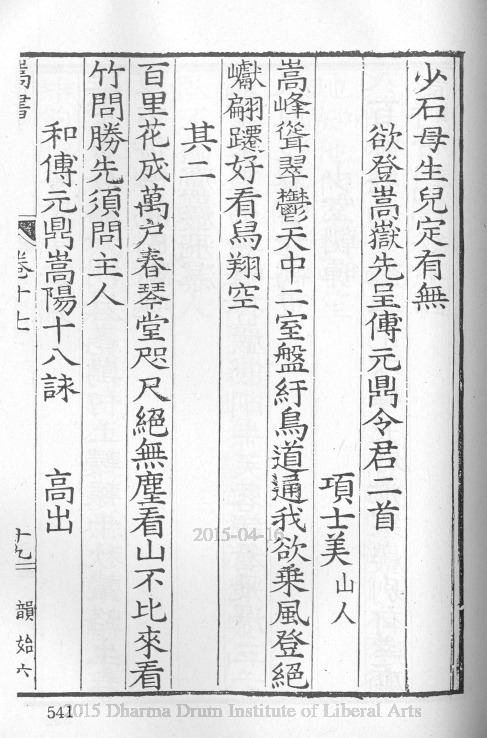 少石母生兒定有無
欲登嵩嶽先呈傅元鼎令君二首
項士美山人
嵩峰聳翠鬱天中二室盤紆鳥道通我欲乘風登絕
巘翩躚好看舄翔空
其二
百里花成萬戶春琴堂咫尺絕無塵看山不比來看
竹問勝先須問主人
和傅元鼎嵩陽十八詠 高出
嵩書 卷十七 十九 韻始六
541
2015-04-16
2015 Dharma Drum Institute of Liberal Arts